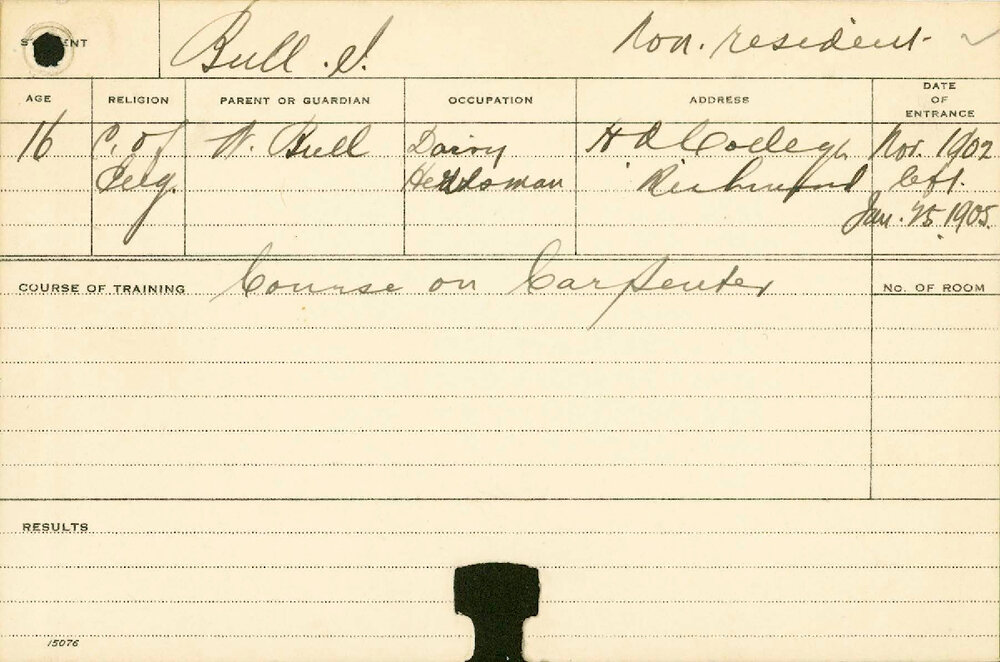 STUDENT Bull. S. Non. resident.
AGE RELIGION PARENT OR GUARDIAN OCCUPATION ADDRESS DATE OF ENTRANCE
16 C. of W. Bull Dairy H A College Nov. 1902
Eng. Herdsman Richmond left.
Jan. 25. 1905.
COURSE OF TRAINING Course on Carpenter No. OF ROOM
RESULTS
15076